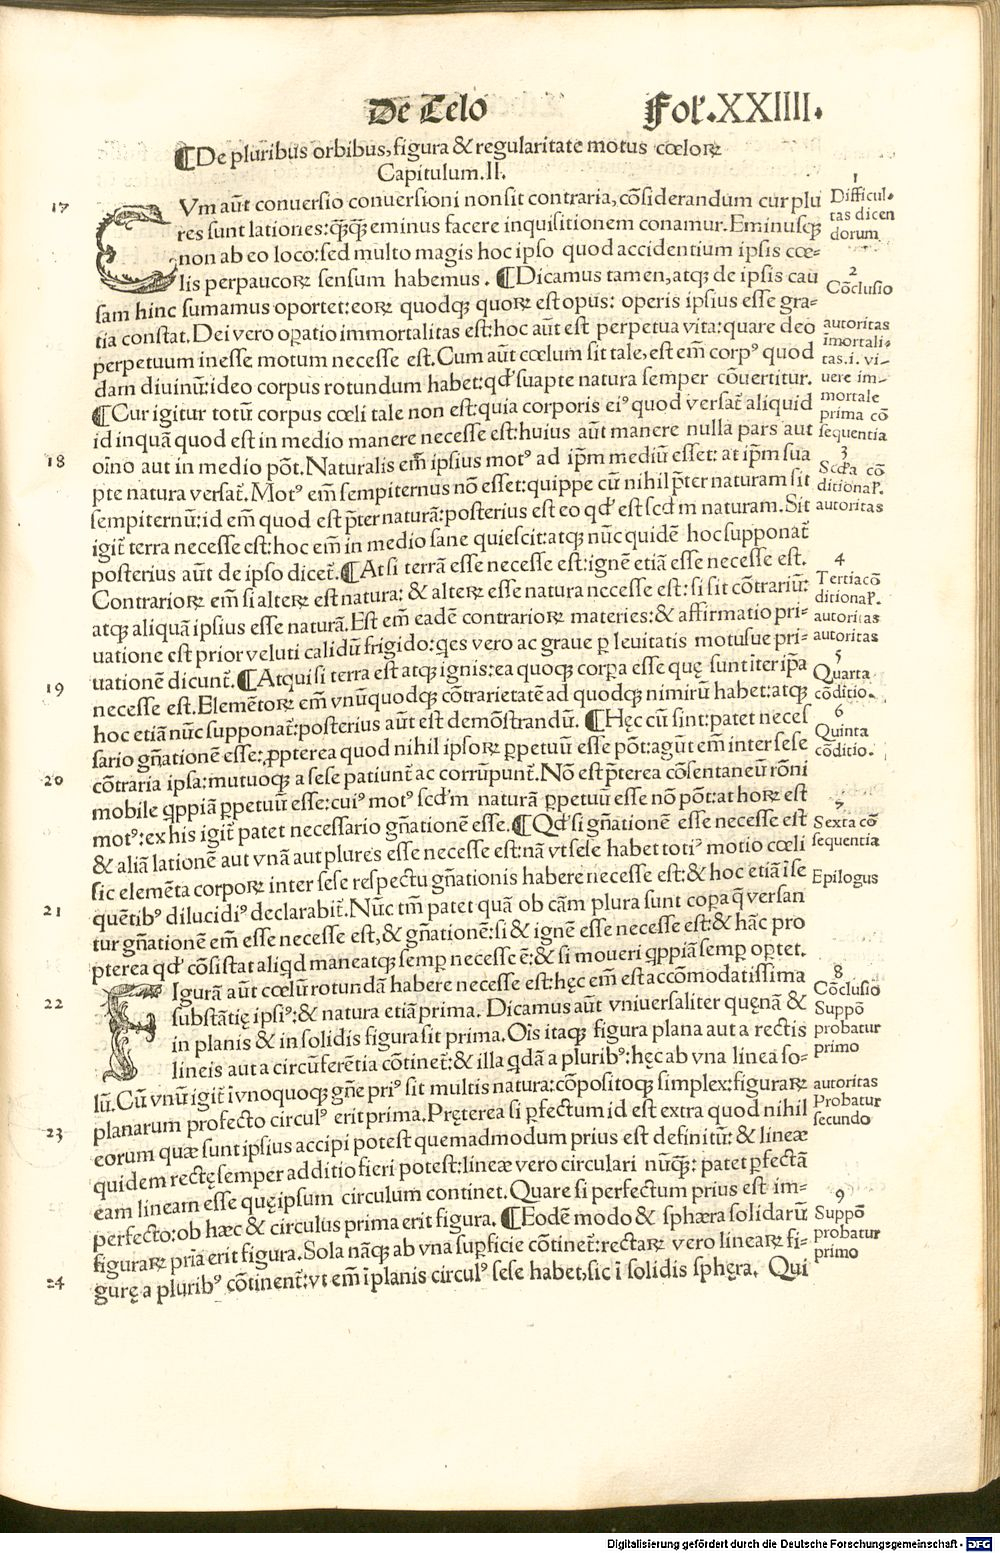 De Celo
Fol. XXIIII.
¶De pluribus orbibus, figura & regularitate motus cœloꝝ
Capitulum. II.
17
CVm aūt conuersio conuersioni non sit contraria, cõsiderandum cur plu
res sunt lationes: q̃q̃ eminus facere inquisitionem conamur. Eminusq;
non ab eo loco: sed multo magis hoc ipso quod accidentium ipsis cœ-
lis perpaucoꝝ sensum habemus. ¶Dicamus tamen, atq; de ipsis cau
sam hinc sumamus oportet: eoꝝ quodq; quoꝝ est opus: operis ipsius esse gra-
tia constat. Dei vero oꝑatio immortalitas est: hoc aūt est perpetua vita: quare deo
perpetuum inesse motum necesse est. Cum aūt cœlum sit tale, est em̄ corpꝰ quod
dam diuinū: ideo corpus rotundum habet: qđ suapte natura semper cõuertitur.
¶Cur igitur totū corpus cœli tale non est: quia corporis eiꝰ quod versat̄ aliquid
id inquã quod est in medio manere necesse est: huius aūt manere nulla pars aut
18
oīno aut in medio põt. Naturalis em̄ ipsius motꝰ ad ip̄m mediū esset: at ip̄m sua
pte natura versat̄. Motꝰ em̄ sempiternus nõ esset: quippe cū nihil p̄ter naturam sit
sempiternū: id em̄ quod est p̄ter naturã: posterius est eo qđ est scđm naturam. Sit
igit̄ terra necesse est: hoc em̄ in medio sane quiescit: atq; nūc quidē hoc supponat̄
posterius aūt de ipso dicet̄. ¶At si terrã esse necesse est: ignē etiã esse necesse est.
Contrarioꝝ em̄ si alteꝝ est natura: & alteꝝ esse natura necesse est: si sit cõtrariū:
atq; aliquã ipsius esse naturã. Est em̄ eadē contrarioꝝ materies: & affirmatio pri-
uatione est prior veluti calidū frigido: qes vero ac graue ꝑ leuitatis motusue pri-
uationē dicunt̄. ¶Atqui si terra est atq; ignis: ea quoq; corꝑa esse quę sunt iter ip̄a
19
necesse est. Elemētoꝝ em̄ vnūquodq; cõtrarietatē ad quodq; nimirū habet: atq;
hoc etiã nūc supponat̄: posterius aūt est demõstrandū. ¶Hęc cū sint: patet neces
sario gñationē esse: ꝓpterea quod nihil ipsoꝝ ꝑpetuū esse põt: agūt em̄ inter sese
20
cõtraria ipsa: mutuoq; a sese patiunt̄ ac corrūpunt̄. Nõ est p̄terea cõsentaneū rõni
mobile qppiã ꝑpetuū esse: cuiꝰ motꝰ scđm naturã ꝑpetuū esse nõ põt: at hoꝝ est
motꝰ: ex his igit̄ patet necessario gñationē esse. ¶Qđ si gñationē esse necesse est
& aliã lationē aut vnã aut plures esse necesse est: nã vt sese habet totiꝰ motio cœli
sic elemēta corpoꝝ inter sese respectu gñationis habere necesse est: & hoc etiã ī se
21
quētibꝰ dilucidiꝰ declarabit̄. Nūc tm̄ patet quã ob cãm plura sunt corꝑa q̄ versan
tur gñationē em̄ esse necesse est, & gñationē: si & ignē esse necesse est: & hãc pro
pterea qđ cõsistat aliqd maneatq; semꝑ necesse ē: & si moueri qppiã semꝑ oꝑtet.
22
FIgurã aūt cœlū rotundã habere necesse est: hęc em̄ est accõmodatissima
substãtię ipsiꝰ: & natura etiã prima. Dicamus aūt vniuersaliter quęnã &
in planis & in solidis figura sit prima. Oīs itaq; figura plana aut a rectis
lineis aut a circūferētia cõtinet̄: & illa qdã a pluribꝰ: hęc ab vna linea so-
lū. Cū vnū igit̄ ī vnoquoq; gñe priꝰ sit multis natura: cõpositoq; simplex: figuraꝝ
planarum profecto circulꝰ erit prima. Pręterea si ꝑfectum id est extra quod nihil
23
eorum quæ sunt ipsius accipi potest quemadmodum prius est definitū: & lineæ
quidem rectę semper additio fieri potest: lineæ vero circulari nūq̃: patet ꝑfectã
eam lineam esse quę ipsum circulum continet. Quare si perfectum prius est im-
perfecto: ob hæc & circulus prima erit figura. ¶Eodē modo & sphæra solidarū
figuraꝝ pria erit figura. Sola nãq; ab vna suꝑficie cõtinet̄: rectaꝝ vero lineaꝝ fi-
24
gurę a pluribꝰ cõtinent̄: vt em̄ ī planis circulꝰ sese habet, sic ī solidis sphęra. Qui
1
Difficul-
tas dicen
dorum
2
Cõclusio
autoritas
īmortali-
tas .i. vi-
uere im-
mortale
prima cõ
sequentia
3
Scđa cõ
ditionaľ.
autoritas
4
Tertia cõ
ditionaľ.
autoritas
autoritas
5
Quarta
cõditio.
6
Quinta
cõditio.
7
Sexta cõ
sequentia
Epilogus
8
Cõclusio
Suppõ
probatur
primo
autoritas
Probatur
secundo
9
Suppõ
probatur
primo
Digitalisierung gefördert durch die Deutsche Forschungsgemeinschaft - DFG